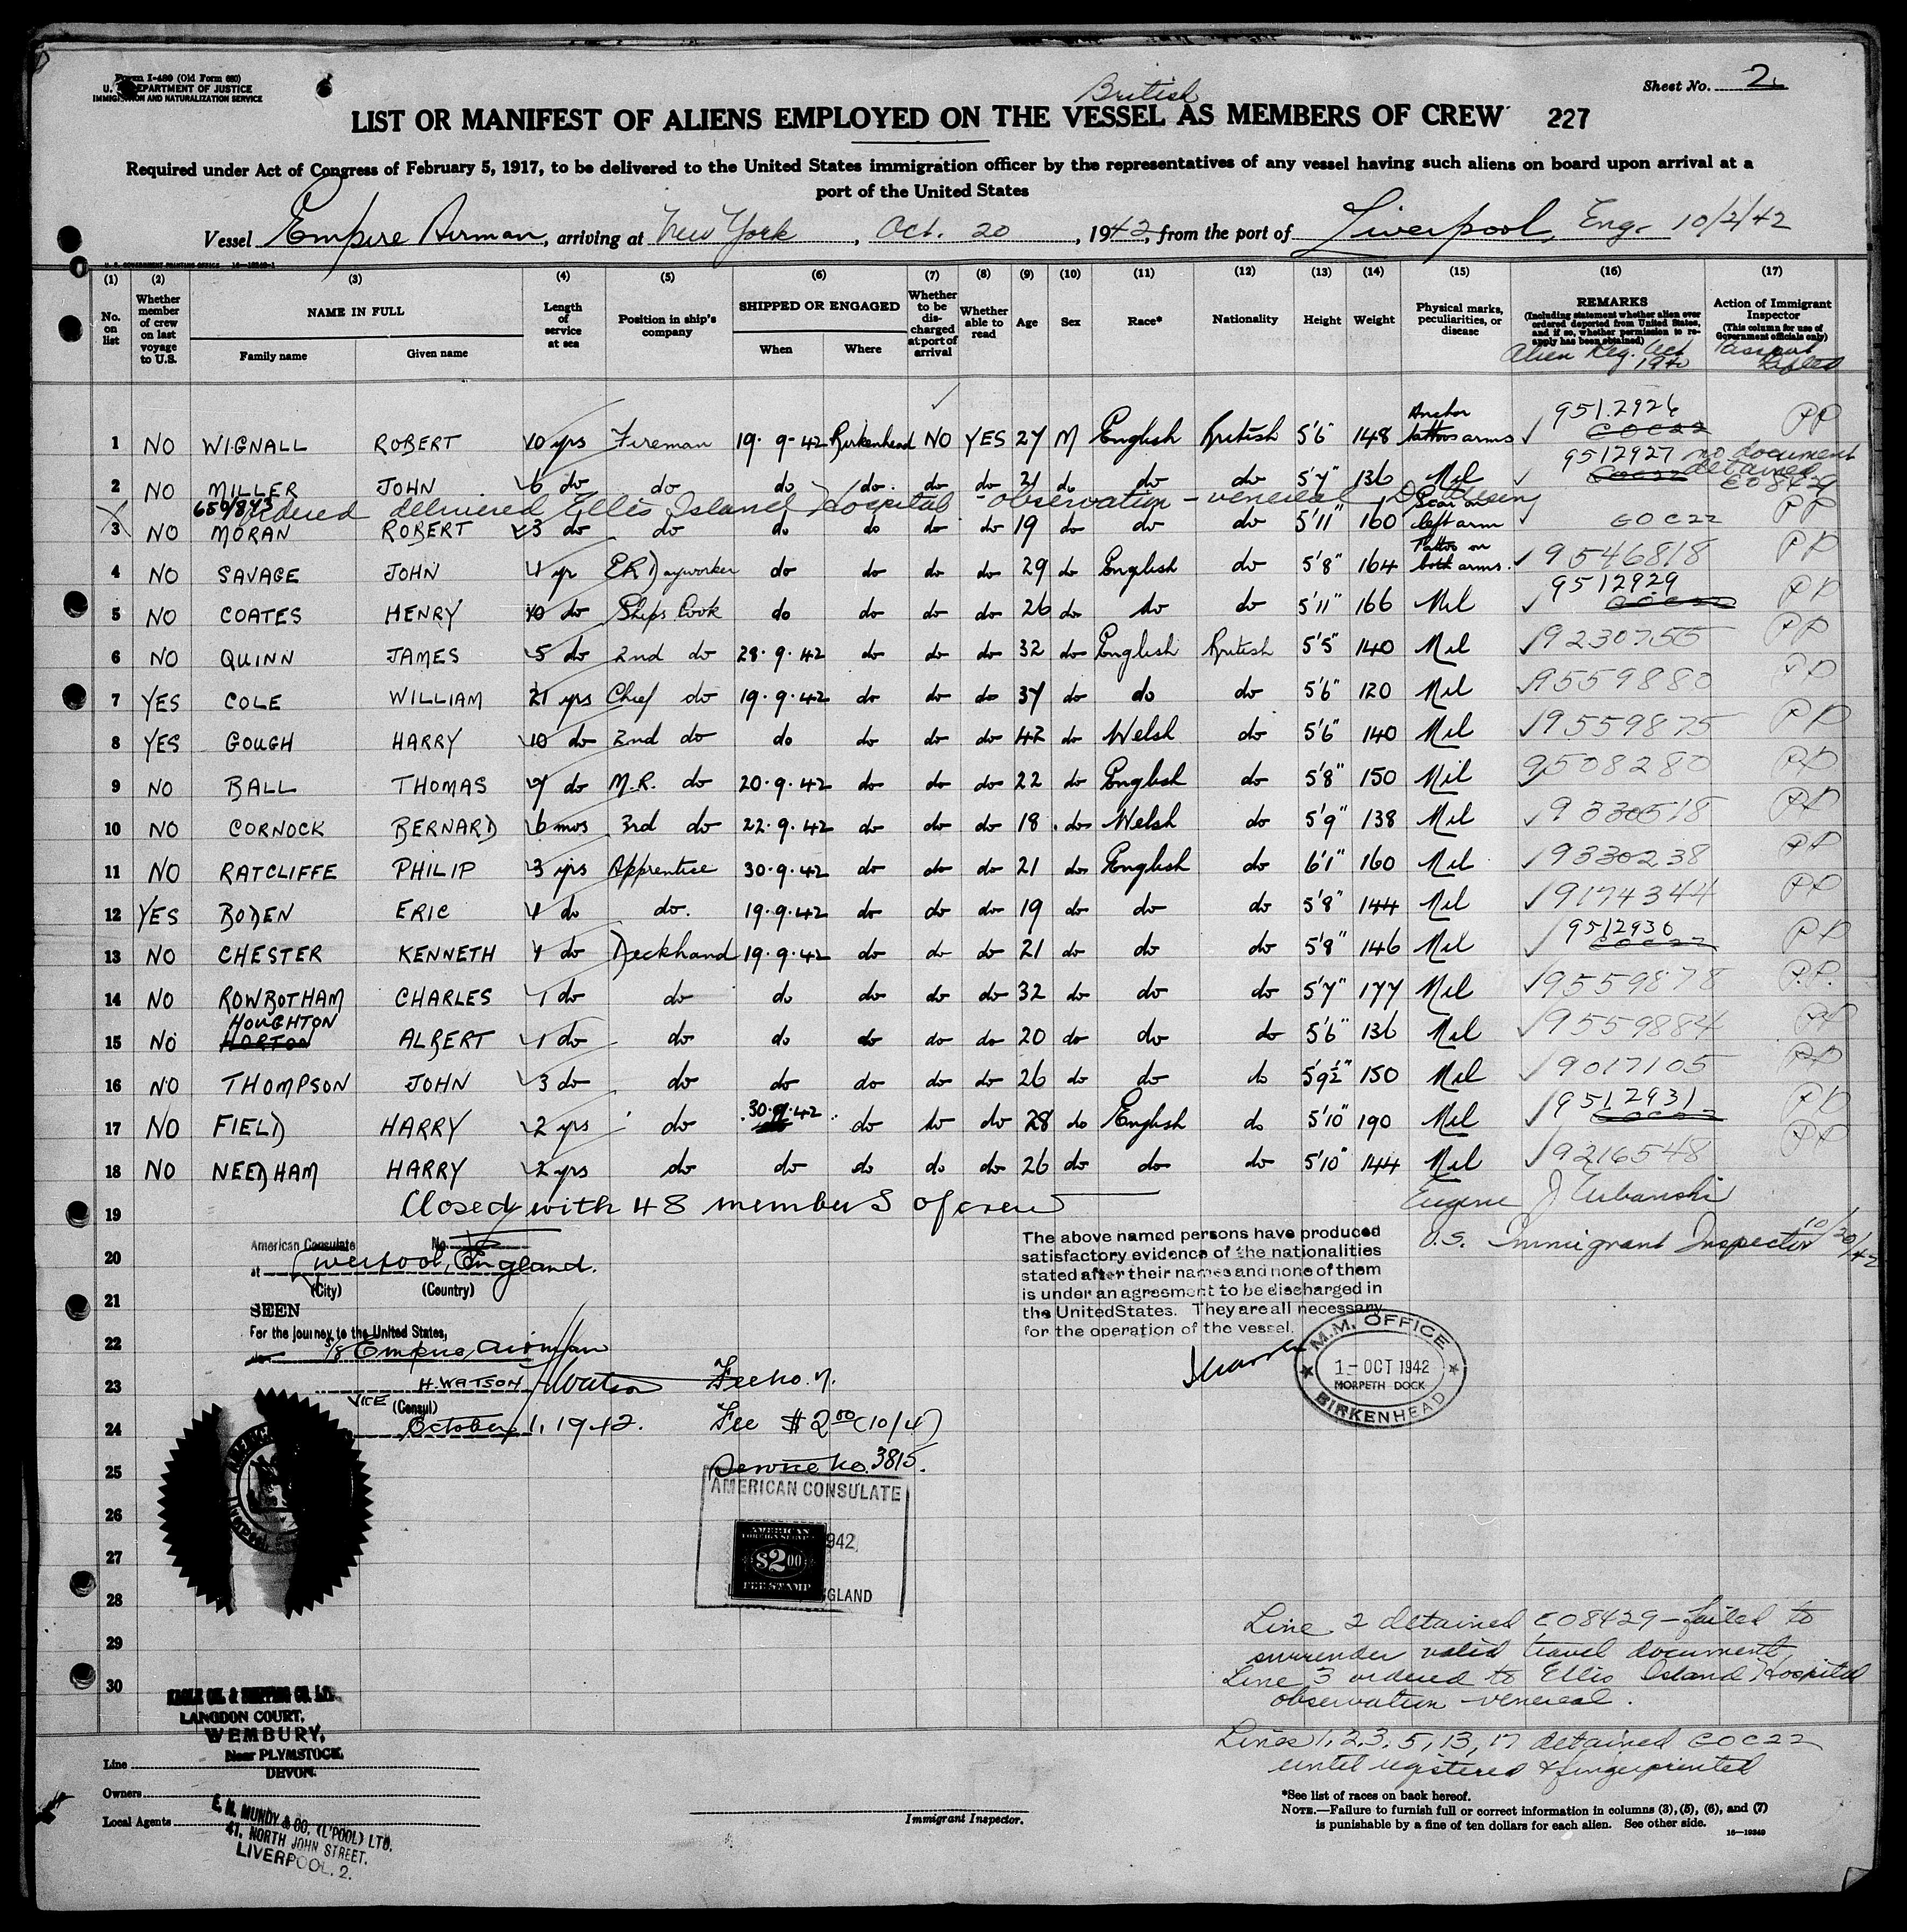 Form I-480 (Old Form 680)
U. S. DEPARTMENT OF JUSTICE
IMMIGRATION AND NATURALIZATION SERVICE
Sheet No. 2
British
LIST OR MANIFEST OF ALIENS EMPLOYED ON THE VESSEL AS MEMBERS OF CREW 227
Required under Act of Congress of February 5, 1917, to be delivered to the United States immigration officer by the representatives of any vessel having such aliens on board upon arrival at a
port of the United States
Vessel Empire Airman, arriving at New York, Oct. 20, 1942, from the port of Liverpool, Eng. 10/2/42
(1) (2) (3) (4) (5) (6) (7) (8) (9) (10) (11) (12) (13) (14) (15) (16) (17)
No. on list
Whether member of crew on last voyage to U.S.
NAME IN FULL
Family name
Given name
Length of service at sea
Position in ship's company
SHIPPED OR ENGAGED
When
Where
Whether to be discharged at port of arrival
Whether able to read
Age
Sex
Race*
Nationality
Height
Weight
Physical marks, peculiarities, or disease
REMARKS
(Including statement whether alien ever ordered deported from United States, and if so, whether permission to reapply has been obtained)
Alien Reg. Act 1940
Action of Immigrant Inspector
(This column for use of Government officials only)
Passport
1 NO WIGNALL ROBERT 10 yrs Fireman 19-9-42 Birkenhead NO YES 27 M English British 5'6" 148 Anchor tattoos arms 9512926 COC22 PP
2 NO MILLER JOHN 6 do do do do do do 21 do do do 5'7" 136 Nil 9512927 COC22 no document detained EO8429
659/843 Ordered delivered Ellis Island Hospital - observation - venereal
3 NO MORAN ROBERT 3 do do do do do do 19 do do do 5'11" 160 Scar on left arm COC22 PP
4 NO SAVAGE JOHN 1 yr ER Dayworker do do do do 29 do English do 5'8" 164 Tattoo on both arms. 9546818 PP
5 NO COATES HENRY 10 do Ships Cook do do do do 26 do do do 5'11" 166 Nil 9512929 COC22 PP
6 NO QUINN JAMES 5 do 2nd do 28.9.42 do do do 32 do English British 5'5" 140 Nil 9230755 PP
7 YES COLE WILLIAM 21 yrs Chief do 19.9.42 do do do 37 do do do 5'6" 120 Nil 9559880 PP
8 YES GOUGH HARRY 10 do 2nd do do do do do 42 do Welsh do 5'6" 140 Nil 9559875 PP
9 NO BALL THOMAS 7 do M.R. do 20.9.42 do do do 22 do English do 5'8" 150 Nil 9508280 PP
10 NO CORNOCK BERNARD 6 mos 3rd do 22.9.42 do do do 18 do Welsh do 5'9" 138 Nil 9330518 PP
11 NO RATCLIFFE PHILIP 3 yrs Apprentice 30.9.42 do do do 21 do English do 6'1" 160 Nil 9330238 PP
12 YES BODEN ERIC 1 do do. 19.9.42 do do do 19 do do do 5'8" 144 Nil 9174344 PP
13 NO CHESTER KENNETH 1 do Deckhand 19.9.42 do do do 21 do do do 5'8" 146 Nil 9512930 COC22 PP
14 NO ROWBOTHAM CHARLES 1 do do do do do do 32 do do do 5'7" 177 Nil 9559878 P.P.
HOUGHTON
15 NO HORTON ALBERT 1 do do do do do do 20 do do do 5'6" 136 Nil 9559884 PP
16 NO THOMPSON JOHN 3 do do do do do do 26 do do do 5'9½" 150 Nil 9017105 PP
17 NO FIELD HARRY 2 yrs do 30.9.42 do do do 28 do English do 5'10" 190 Nil 9512931 COC22 PP
18 NO NEEDHAM HARRY 2 yrs do do do do do 26 do do do 5'10" 144 Nil 9216548 PP
19 Closed with 48 members of crew Eugene J Urbanski
U.S. Immigrant Inspector 10/20/42
20
21
22
23
24
25
26
27
28
29
30
American Consulate No.
at Liverpool, England.
(City) (Country)
SEEN
For the journey to the United States,
S/S Empire Airman
H. WATSON HWatson
VICE (Consul)
October 1, 1942.
Fee No. 7.
Fee $2.00 (10/4)
Service No. 3815.
AMERICAN CONSULATE
942
AMERICAN
FOREIGN SERVICE
$2.00
FEE STAMP
GLAND
The above named persons have produced
satisfactory evidence of the nationalities
stated after their names and none of them
is under an agreement to be discharged in
the United States. They are all necessary
for the operation of the vessel.
M.M. OFFICE
1-OCT 1942
MORPETH DOCK
BIRKENHEAD
Line 2 detained EO8429 - failed to
surrender valid travel document
Line 3 ordered to Ellis Island Hospital
observation - venereal.
Lines 1, 2, 3, 5, 13, 17 detained COC22
until registered & fingerprinted
EAGLE OIL & SHIPPING CO. LTD.
LANGDON COURT,
WEMBURY,
Near PLYMSTOCK,
DEVON.
Line
Owners
Local Agents
E. N. MUNDY & CO. (L'POOL) LTD.
41, NORTH JOHN STREET.
LIVERPOOL. 2.
Immigrant Inspector.
*See list of races on back hereof.
NOTE.—Failure to furnish full or correct information in columns (3), (5), (6), and (7)
is punishable by a fine of ten dollars for each alien. See other side.
16—19349